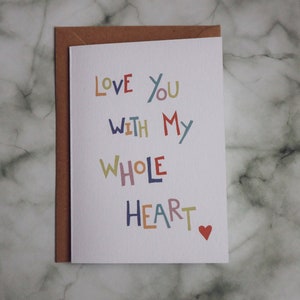 LOVE YOU
WITH MY
WHOLE
HEART